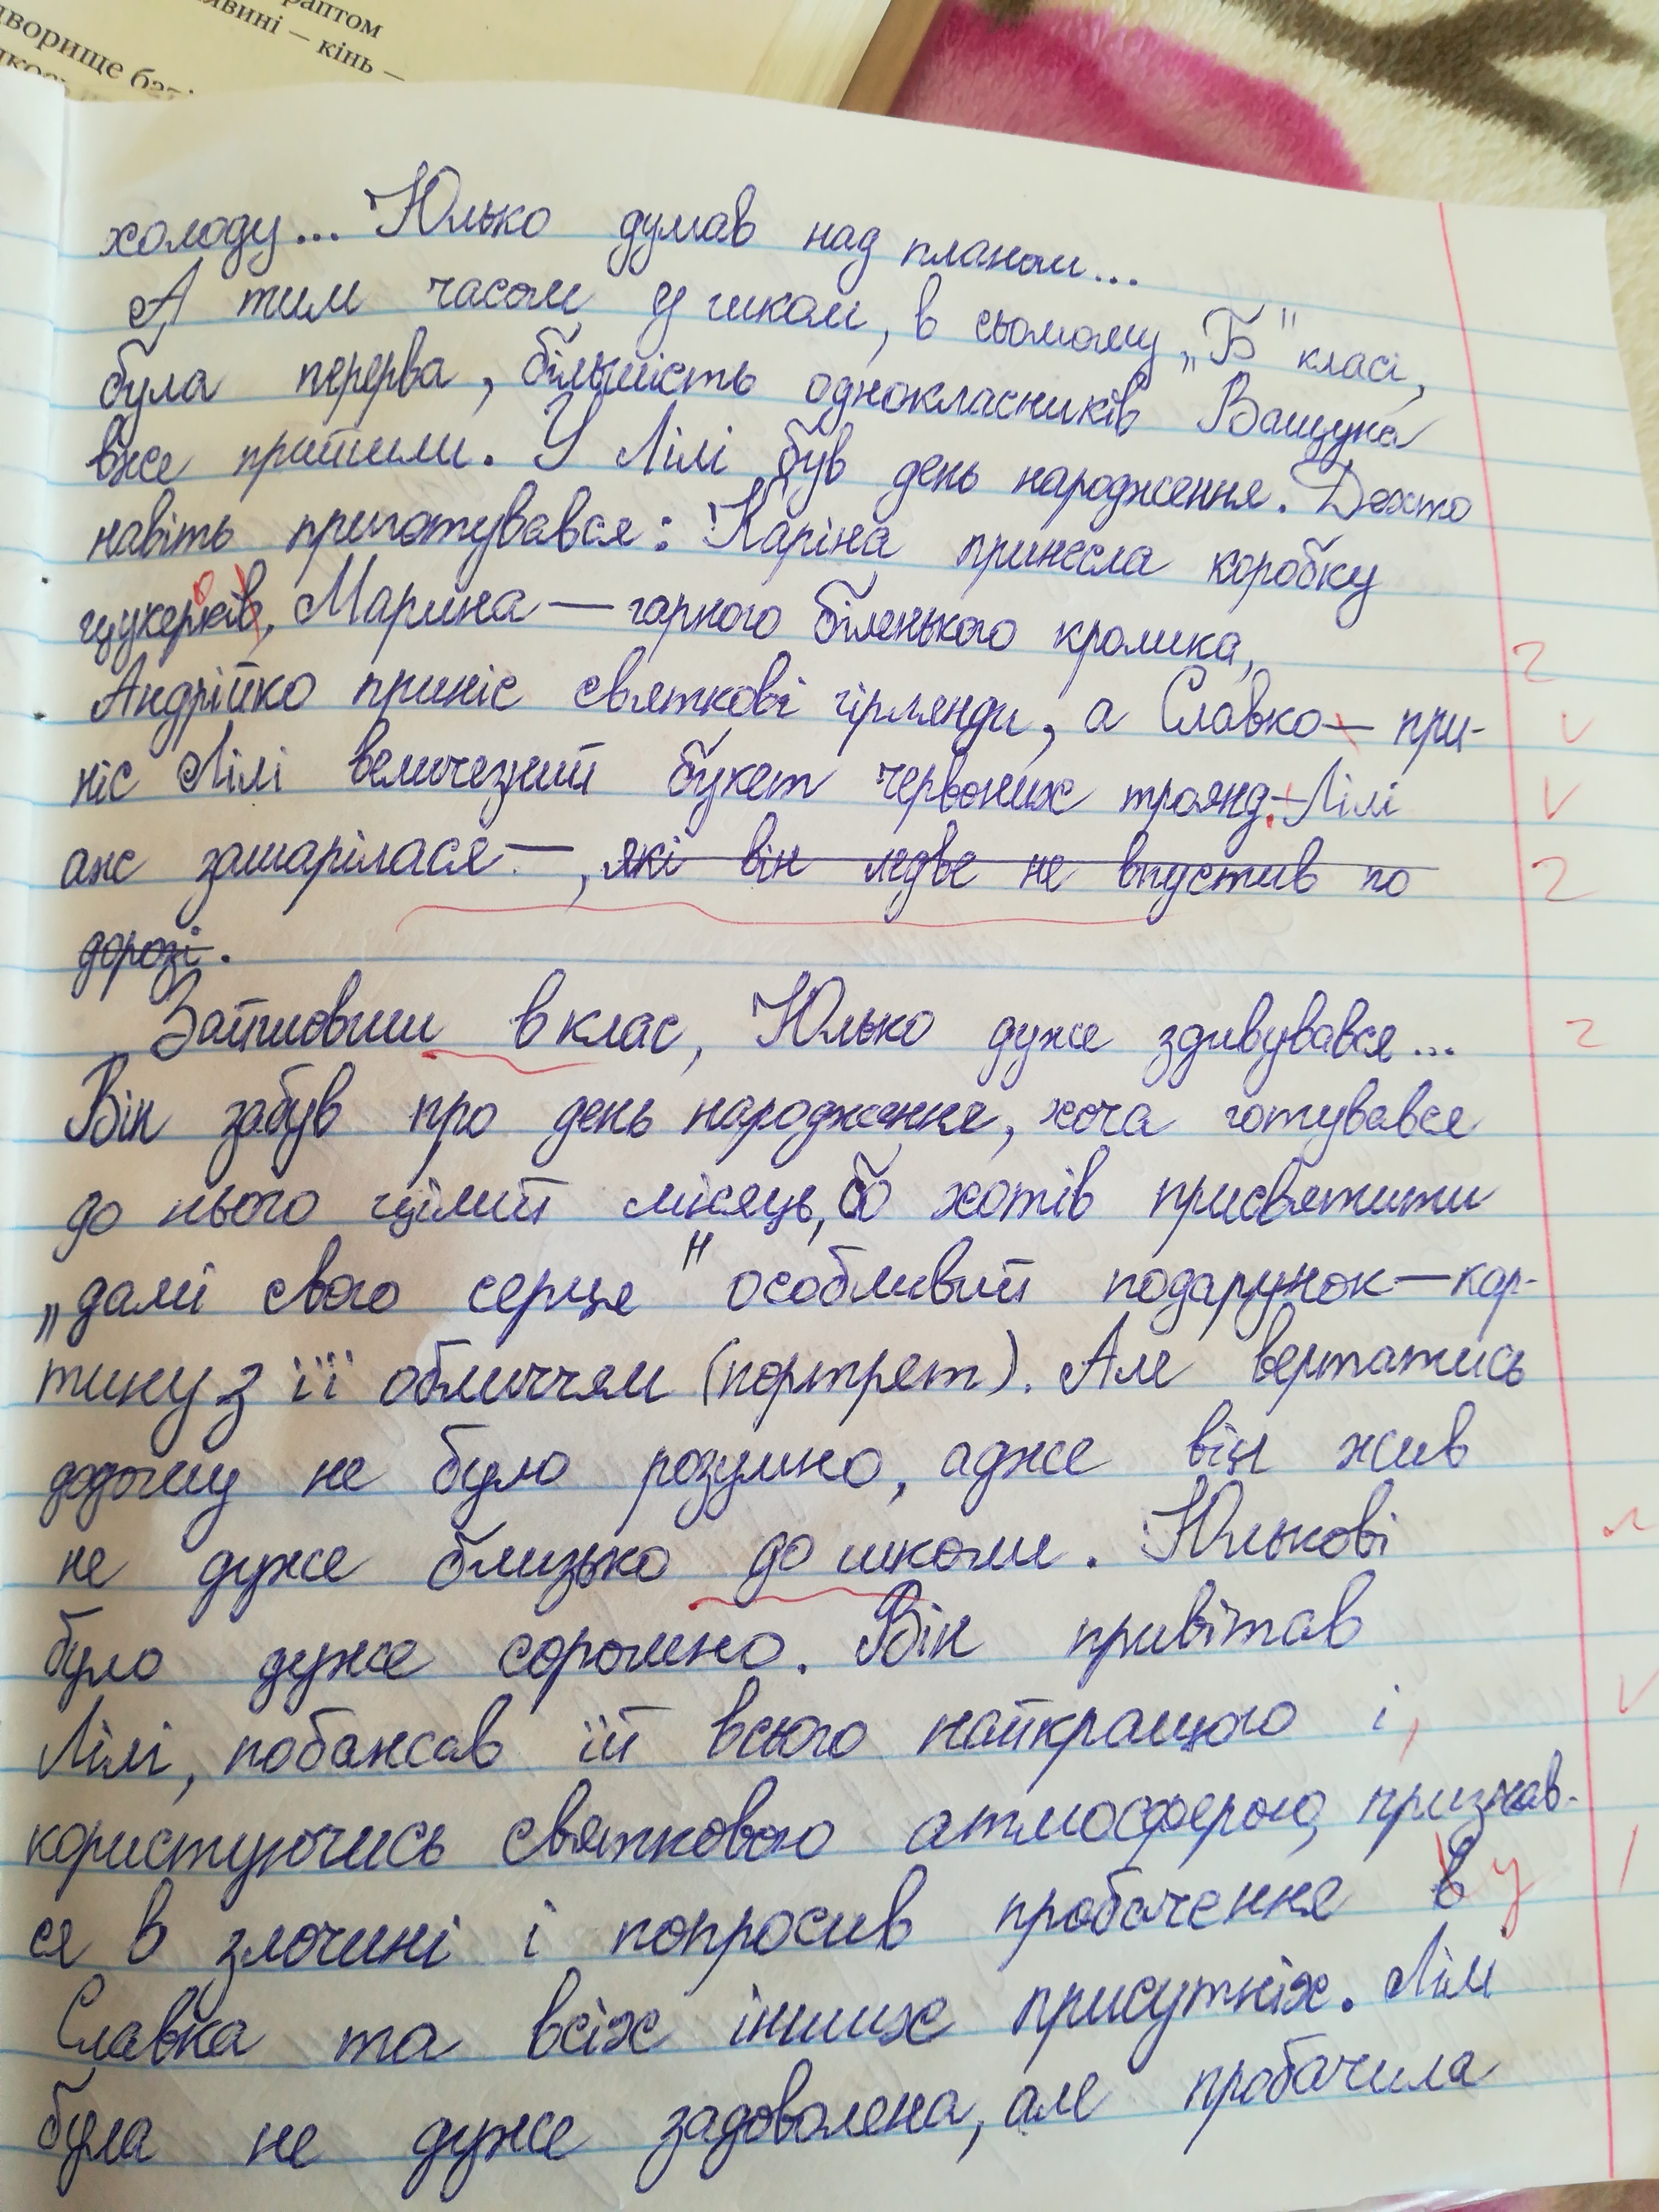 раптом
ивині – кінь –
дворище баті
холоду... Юлько думав над планом...
А тим часом у школі, в сьомому „Б" класі,
була перерва, більшість однокласників Ващука
вже прийшли. У Лілі був день народження. Дехто
навіть приготувався: Каріна принесла коробку
цукерків, Марина — гарного біленького кролика,
Андрійко приніс святкові гірлянди, а Славко — при-
ніс Лілі величезний букет червоних троянд. — Лілі
аж зашарілася —, які він ледве не впустив по
дорозі.
Зайшовши в клас, Юлько дуже здивувався...
Він забув про день народження, хоча готувався
до нього цілий місяць, бо хотів присвятити
„дамі свого серця" особливий подарунок — кар-
тину з її обличчям (портрет). Але вертатись
додому не було розумно, адже він жив
не дуже близько до школи. Юлькові
було дуже соромно. Він привітав
Лілі, побажав їй всього найкращого і,
користуючись святковою атмосферою, признав-
ся в злочині і попросив пробачення в у
Славка та всіх інших присутніх. Лілі
була не дуже задоволена, але пробачила